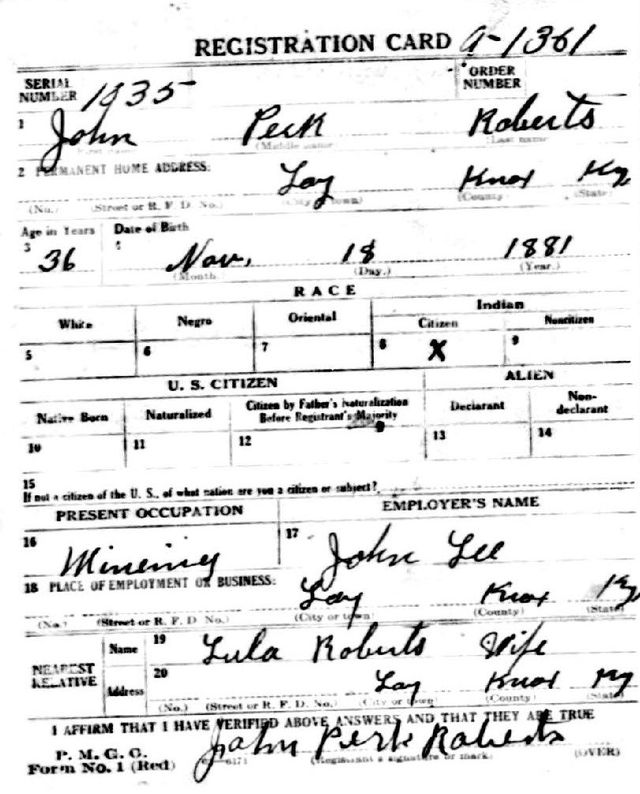 REGISTRATION CARD a-1361
SERIAL NUMBER 1935 ORDER NUMBER
1 John Perk Roberts
(Middle name (Last name
2 PERMANENT HOME ADDRESS: Loy Knox Ky
(No.) (Street or R. F. D. No.) (City or town) (County) (State)
Age in Years Date of Birth
3 36 4 Nov. 18 1881
(Month (Day.) (Year.)
RACE
White Negro Oriental Indian
Citizen Noncitizen
5 6 7 8 X 9
U. S. CITIZEN ALIEN
Native Born Naturalized Citizen by Father's Naturalization Before Registrant's Majority Declarant Non-declarant
10 11 12 13 14
15
If not a citizen of the U. S., of what nation are you a citizen or subject?
PRESENT OCCUPATION EMPLOYER'S NAME
16 Mineing 17 John Lee
18 PLACE OF EMPLOYMENT OR BUSINESS: Loy Knox Ky
(No.) (Street or R. F. D No.) (City or town) (County) (State)
NEAREST RELATIVE Name 19 Lula Roberts Wife
Address 20 Loy Knox Ky
(No.) (Street or R. F. D. No.) (City or town) (County) (State)
I AFFIRM THAT I HAVE VERIFIED ABOVE ANSWERS AND THAT THEY ARE TRUE
P. M. G. O.
Form No. 1 (Red) John Perk Roberts
(Registrant's signature or mark) (OVER)